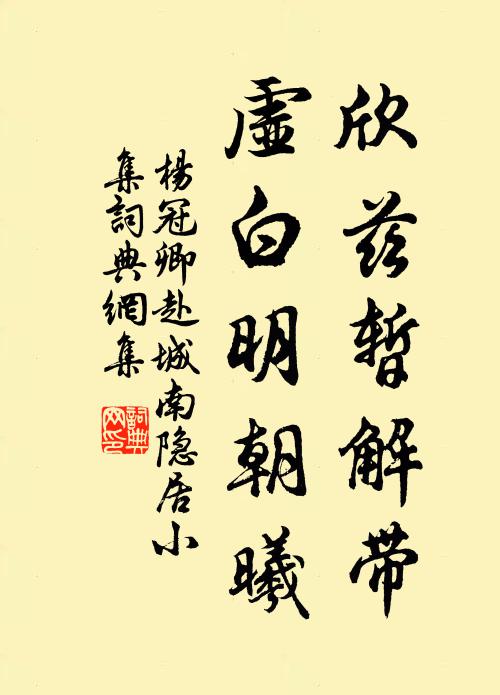 欣兹暫解带
虚白明朝曦
楊冠卿赴城南隐居小
集詞典網集
詞典网印